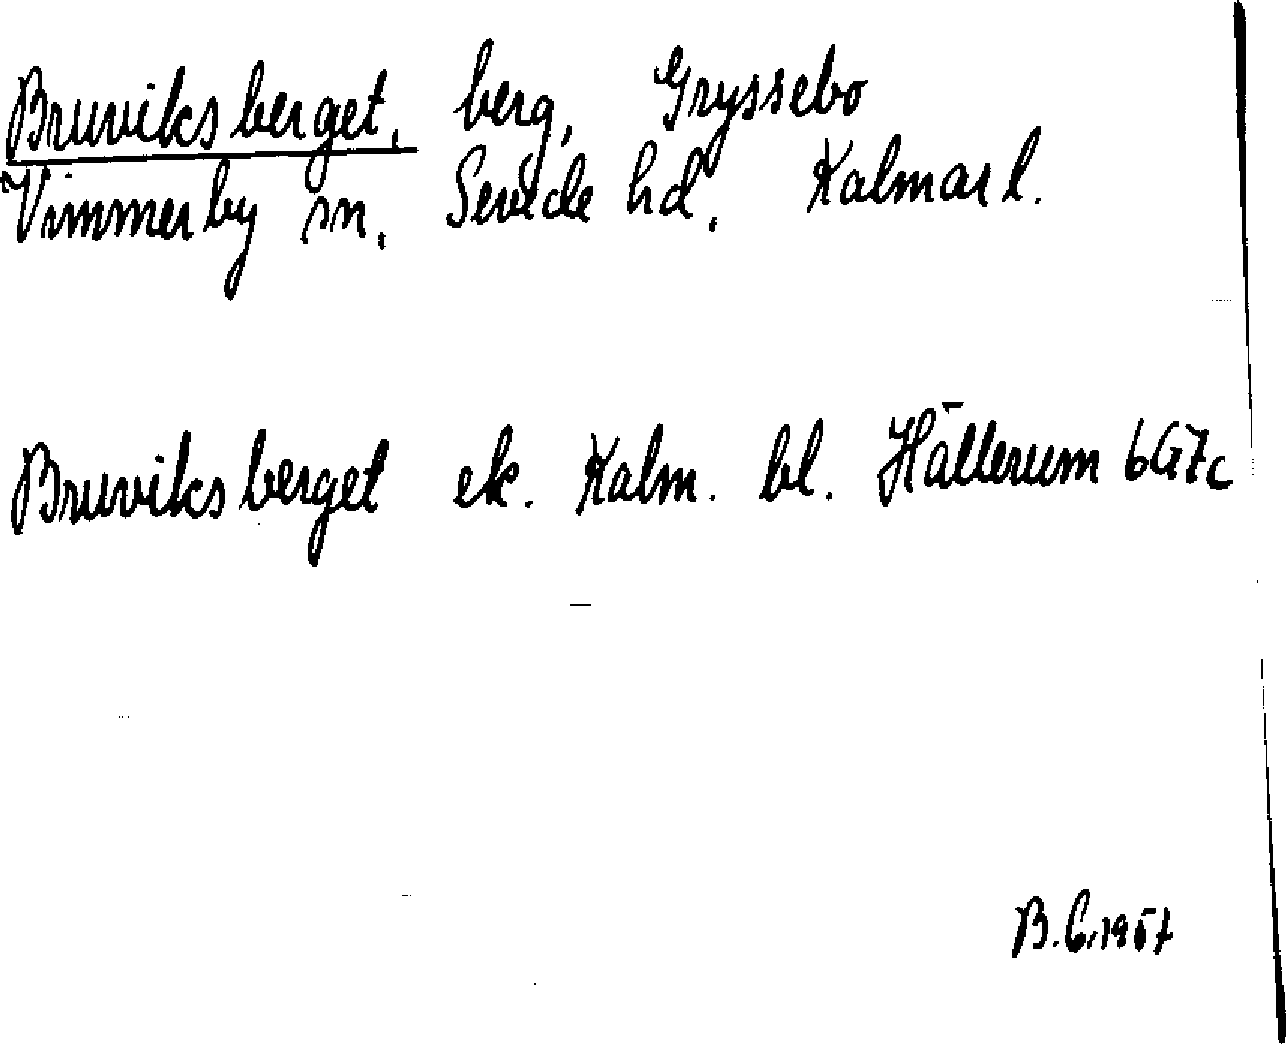 Bruviksberget, berg, Gryssebo
Vimmerby sn, Sevede hd, Kalmar l.
Bruviksberget ek. Kalm. bl. Hällerum 6G7c
B.C. 1957